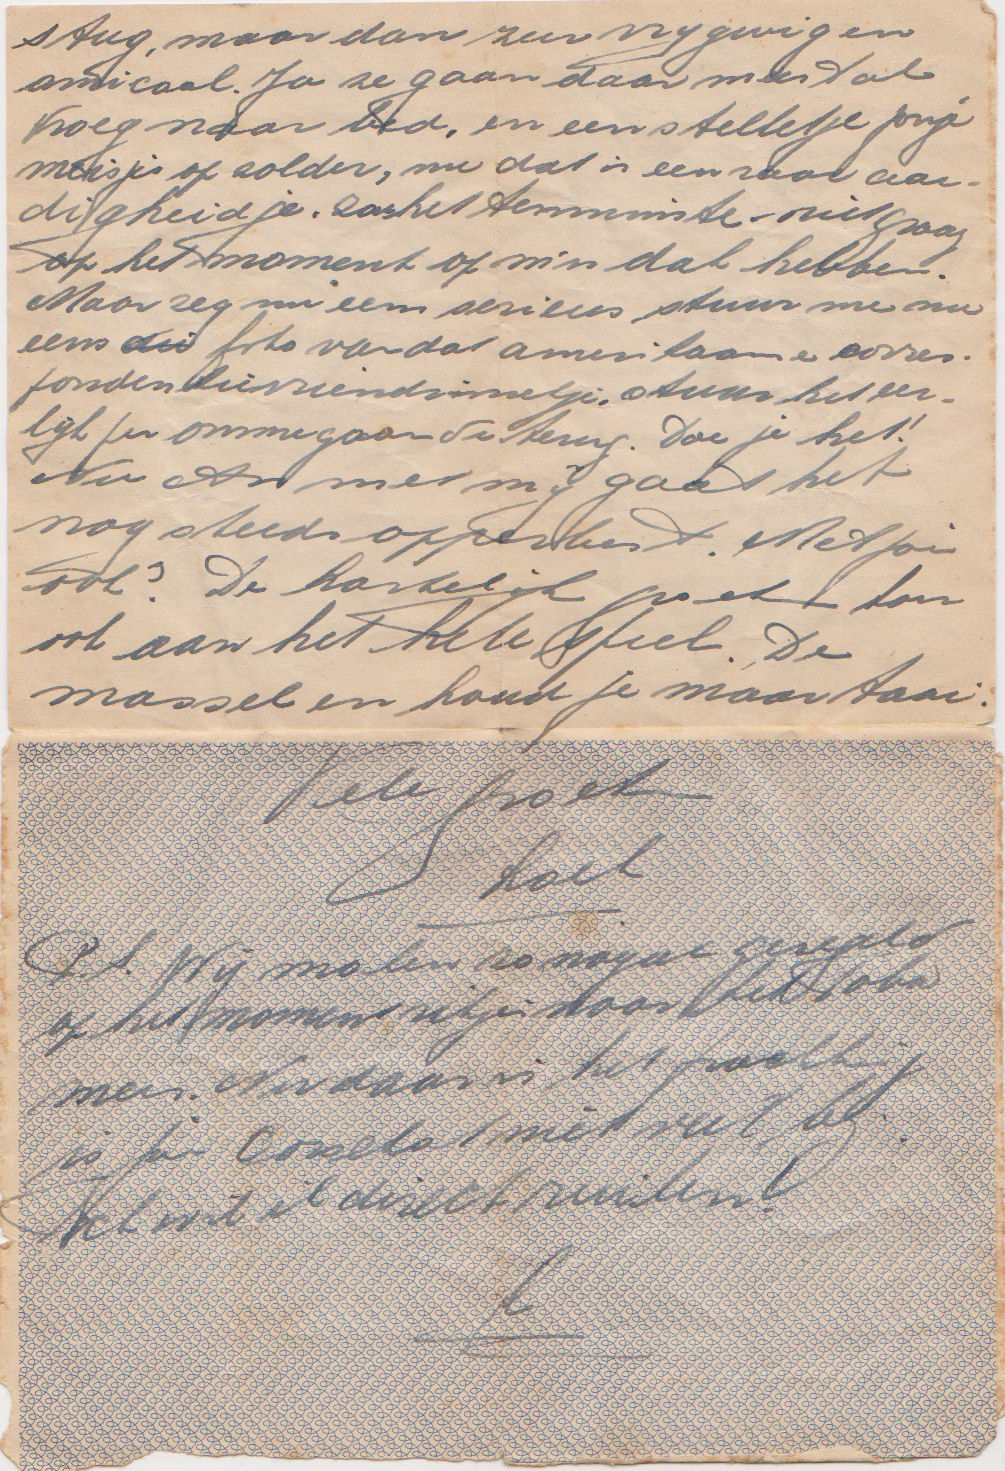 stug, maar dan zeer vrygevig en
amicaal. Ja ze gaan daar meestal
vroeg naar bed, en een stelletje jonge
meisjes op zolder, nu dat is een raar aar-
digheidje. Zou het tenminste niet graag
op het moment op m'n dak hebben.
Maar zeg nu eens serieus stuur me nu
eens die foto van dat amerikaanse corres-
pondentievriendinnetje. Stuur het eer-
lijk per ommegaande terug. Doe je het!
Nu An met mij gaat het
nog steeds opperbest. Met jou
ook? De hartelijk groeten hoor
ook aan het hele spul. De
massel en houd je maar taai.
Vele groeten
P.S. Wij
op het moment uitjes door
meer. Nu daar is het
is
wil ik direct ruilen!